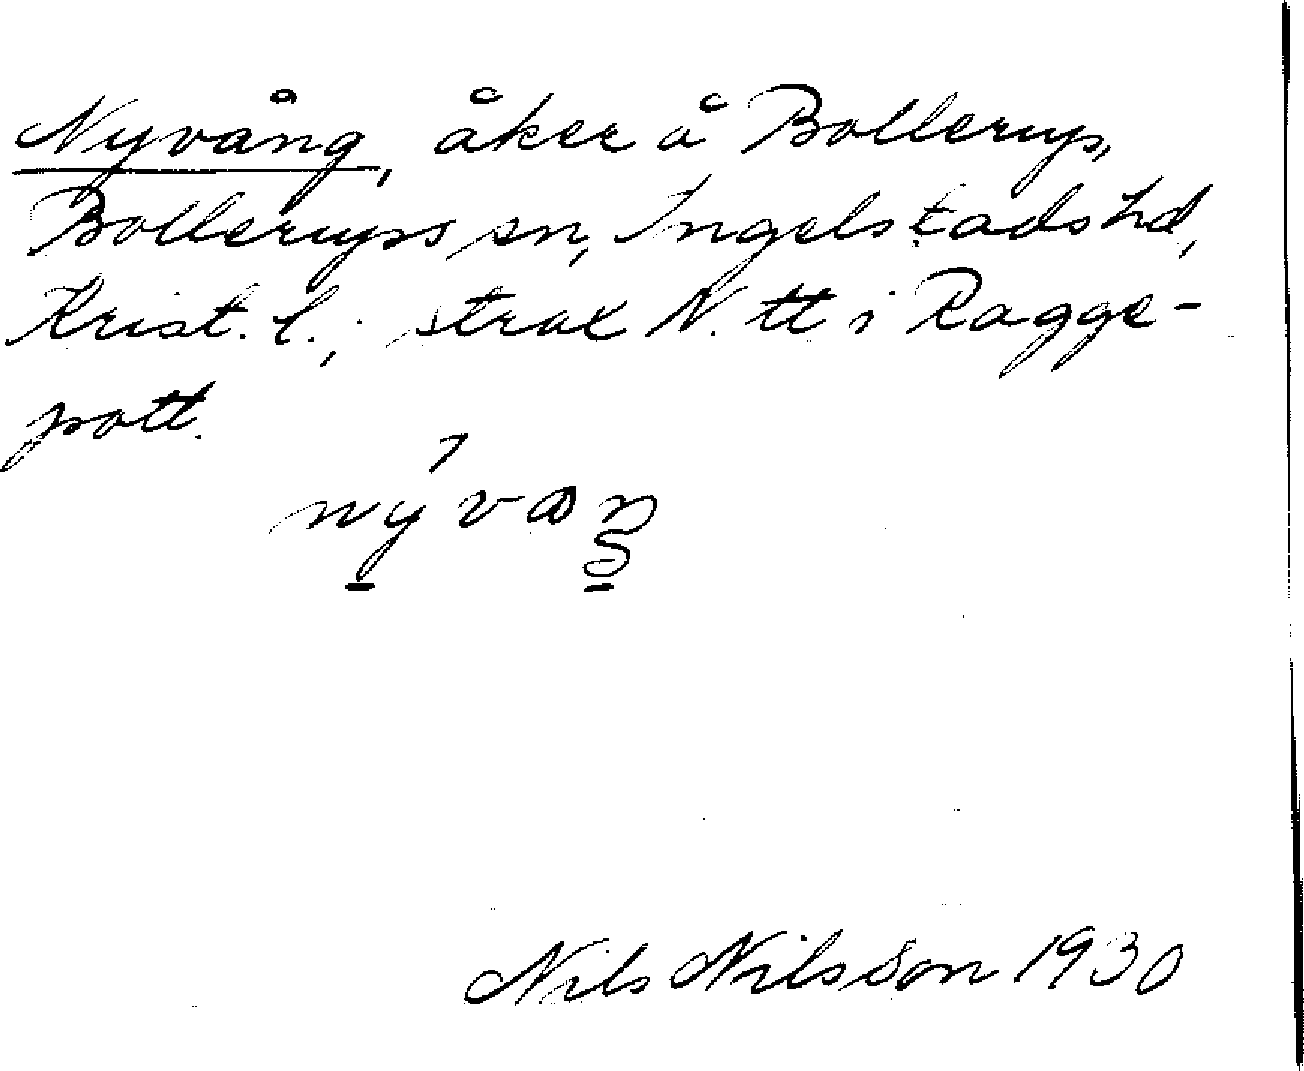 Nyvång, åker å Bollerup,
Bollerups sn, Ingelstads hd,
Krist. l.; strax N. tt i Ragge-
pott.
nývaŋ
Nils Nilsson 1930